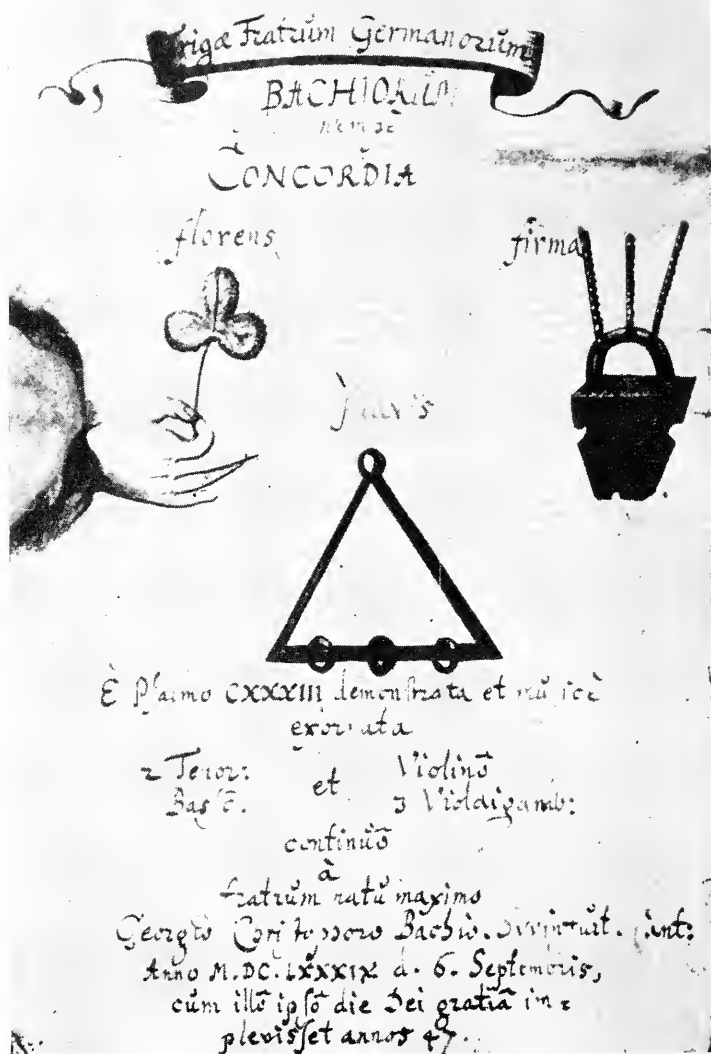 Trigæ Fratrŭm Germanorŭm
BACHIORŬM
CONCORDIA
florens
firma
suavis
È Psalmo CXXXIII demonstrata et musicè
exornata
2 Tenor: et Violinō
Basſō. 3 Violdigamb:
continŭō
à
fratrŭm natŭ maximo
Georgio Christophoro Bachio. Svvinfŭrt. Cant:
Anno M.DC.LXXXIX d. 6. Septembris,
cŭm illō ipſō die Dei gratiâ im=
pleviſſet annos 47.